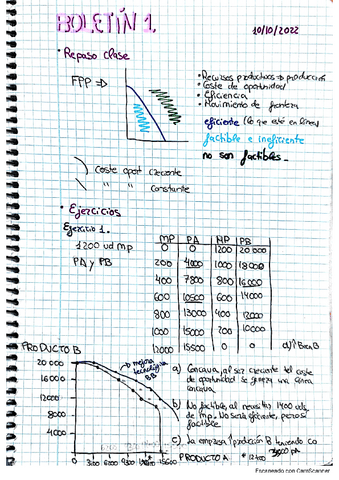 BOLETÍN 1.
10/10/2022
• Repaso clase
FPP ⇒
• Recursos productivos → producción
• Coste de oportunidad
• Eficiencia
• Movimiento de frontera
eficiente (lo que esté en línea)
factible e ineficiente
no son factibles.
Coste oport creciente
" " constante
• Ejercicios
Ejercicio 1.
1200 ud mp
PA y PB
MP PA MP PB
0 0 1200 20000
200 4000 1000 18000
400 7800 800 16000
600 10500 600 14000
800 13000 400 12000
1000 15000 200 10000
1200 15500 0 0
PRODUCTO B
mejora
tecnológica
20 000
16000
12000
8000
4000
0
PRODUCTO A
a) Concava, al ser creciente el coste
de oportunidad se genera una línea
concava
b) No factible, al necesitar 1400 uds
de mp. No sería eficiente, pero sí
factible
c) La empresa producción B teniendo
Escaneado con CamScanner